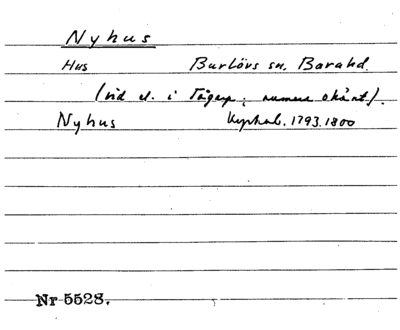 Nyhus
Hus Burlövs sn. Bara hd.
(vid el. i Tågarp; numera okänt).
Nyhus Kyrkob. 1793. 1800
Nr 5528.